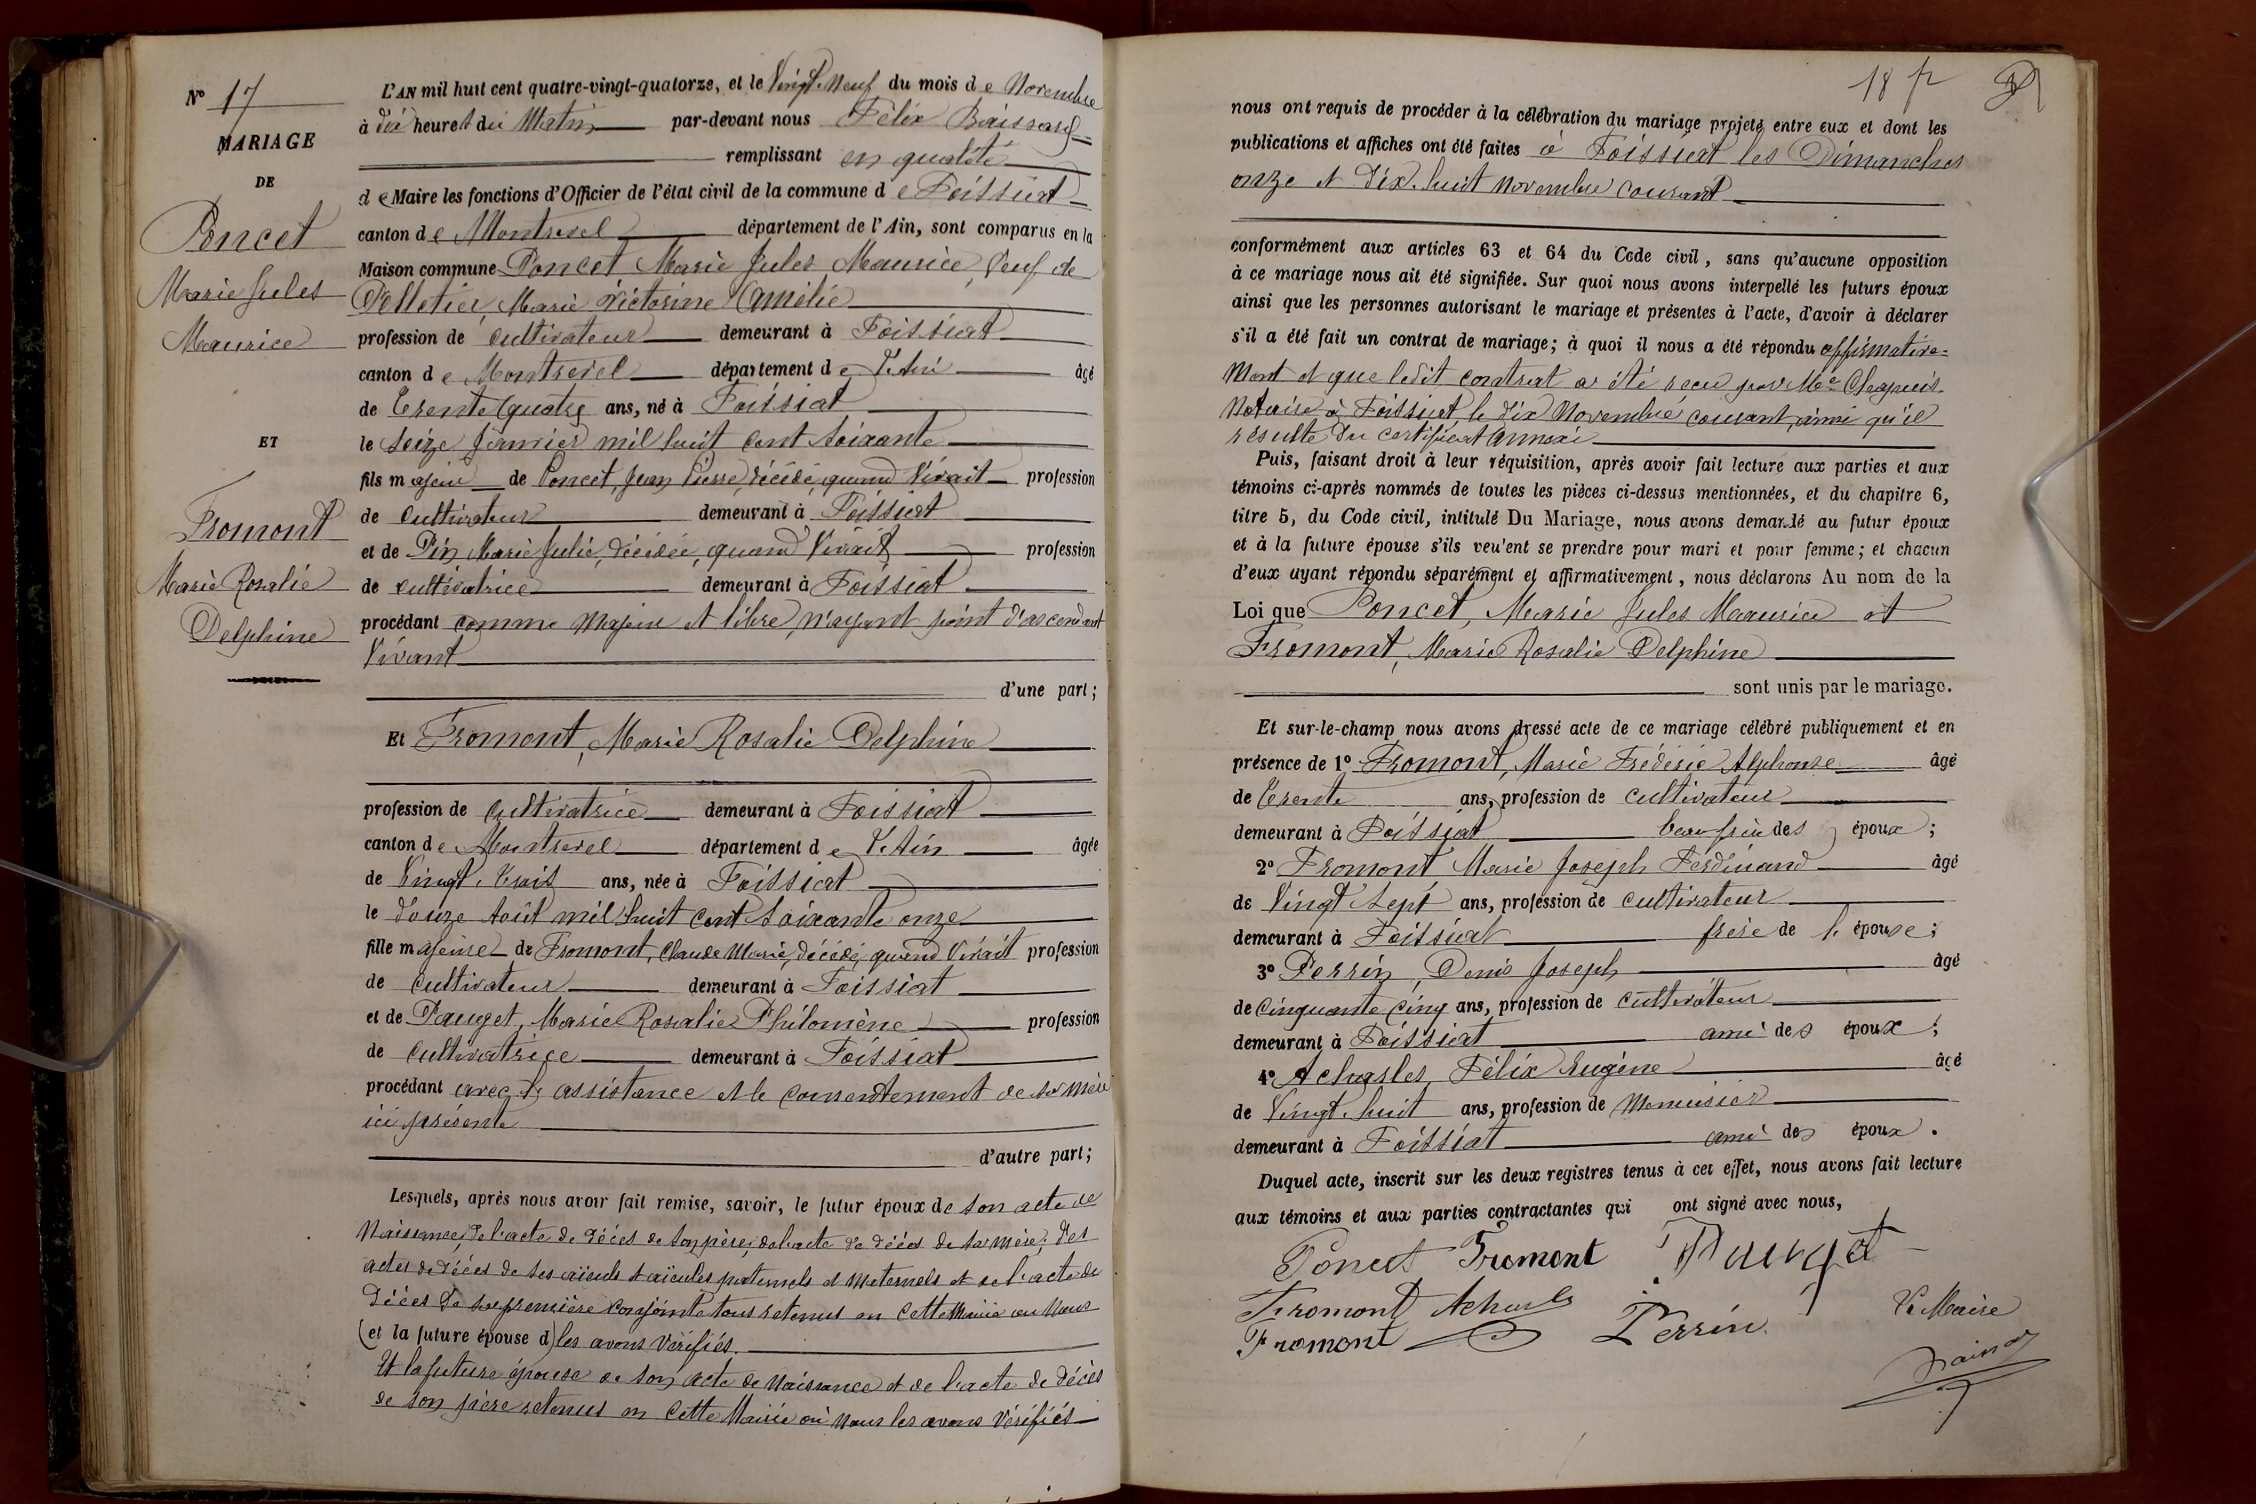 N° 17
MARIAGE
DE
Poncet
Marie Jules
Maurice
ET
Fromont
Marie Rosalie
Delphine
L'AN mil huit cent quatre-vingt-quatorze, et le Vingt-Neuf du mois de Novembre
à dix heures du Matin par-devant nous Félix
remplissant en qualité
de Maire les fonctions d'Officier de l'état civil de la commune de Foissiat
canton de Montrevel département de l'Ain, sont comparus en la
Maison commune Poncet Marie Jules Maurice, Veuf de
Pelletier, Marie Victorine Amélie
profession de cultivateur demeurant à Foissiat
canton de Montrevel département de l'Ain âgé
de Trente quatre ans, né à Foissiat
le seize Janvier mil huit cent soixante
fils majeur de Poncet, Jean Pierre, décédé, quand Vivait profession
de cultivateur demeurant à Foissiat
et de Pin Marie Julie, décédée, quand Vivait profession
de cultivatrice demeurant à Foissiat
procédant comme Majeur et libre, n'ayant point d'ascendant
Vivant
d'une part;
Et Fromont, Marie Rosalie Delphine
profession de cultivatrice demeurant à Foissiat
canton de Montrevel département de l'Ain âgée
de Vingt-trois ans, née à Foissiat
le douze Août mil huit cent soixante onze
fille majeure de Fromont, Claude Marie, décédé, quand Vivait profession
de cultivateur demeurant à Foissiat
et de Pauget, Marie Rosalie Philomène profession
de cultivatrice demeurant à Foissiat
procédant avec l'assistance et le consentement de sa mère
ici présente
d'autre part;
Lesquels, après nous avoir fait remise, savoir, le futur époux de son acte de
Naissance, de l'acte de décès de son père, de l'acte de décès de sa mère, des
actes de décès de ses aïeuls et aïeules paternels et maternels et de l'acte de
décès de sa première conjointe tous retenus en cette Mairie où Nous
(et la future épouse d) les avons Vérifiés.
Et la future épouse de son acte de Naissance et de l'acte de décès
de son père retenus en cette Mairie où nous les avons Vérifiés
18
nous ont requis de procéder à la célébration du mariage projeté entre eux et dont les
publications et affiches ont été faites à Foissiat les Dimanches
onze et dix-huit Novembre courant
conformément aux articles 63 et 64 du Code civil, sans qu'aucune opposition
à ce mariage nous ait été signifiée. Sur quoi nous avons interpellé les futurs époux
ainsi que les personnes autorisant le mariage et présentes à l'acte, d'avoir à déclarer
s'il a été fait un contrat de mariage; à quoi il nous a été répondu affirmative-
ment et que ledit contrat a été reçu par Me Chapuis
Notaire à Foissiat, le dix Novembre courant, ainsi qu'il
résulte du certificat annexé
Puis, faisant droit à leur réquisition, après avoir fait lecture aux parties et aux
témoins ci-après nommés de toutes les pièces ci-dessus mentionnées, et du chapitre 6,
titre 5, du Code civil, intitulé Du Mariage, nous avons demandé au futur époux
et à la future épouse s'ils veulent se prendre pour mari et pour femme; et chacun
d'eux ayant répondu séparément et affirmativement, nous déclarons Au nom de la
Loi que Poncet, Marie Jules Maurice et
Fromont, Marie Rosalie Delphine
sont unis par le mariage.
Et sur-le-champ nous avons dressé acte de ce mariage célébré publiquement et en
présence de 1° Fromont, Marie Frédéric Alphonse âgé
de Trente ans, profession de cultivateur
demeurant à Foissiat des époux;
2° Fromont Marie Joseph Ferdinand âgé
de Vingt Sept ans, profession de cultivateur
demeurant à Foissiat frère de l'épouse;
3° Perrin, Denis Joseph âgé
de cinquante cinq ans, profession de cultivateur
demeurant à Foissiat ami des époux;
4° Acharles, Félix Eugène âgé
de Vingt-huit ans, profession de Menuisier
demeurant à Foissiat ami des époux.
Duquel acte, inscrit sur les deux registres tenus à cet effet, nous avons fait lecture
aux témoins et aux parties contractantes qui ont signé avec nous,
Poncet Fromont Pauget
Fromont Acharles
Fromont Perrin Le Maire